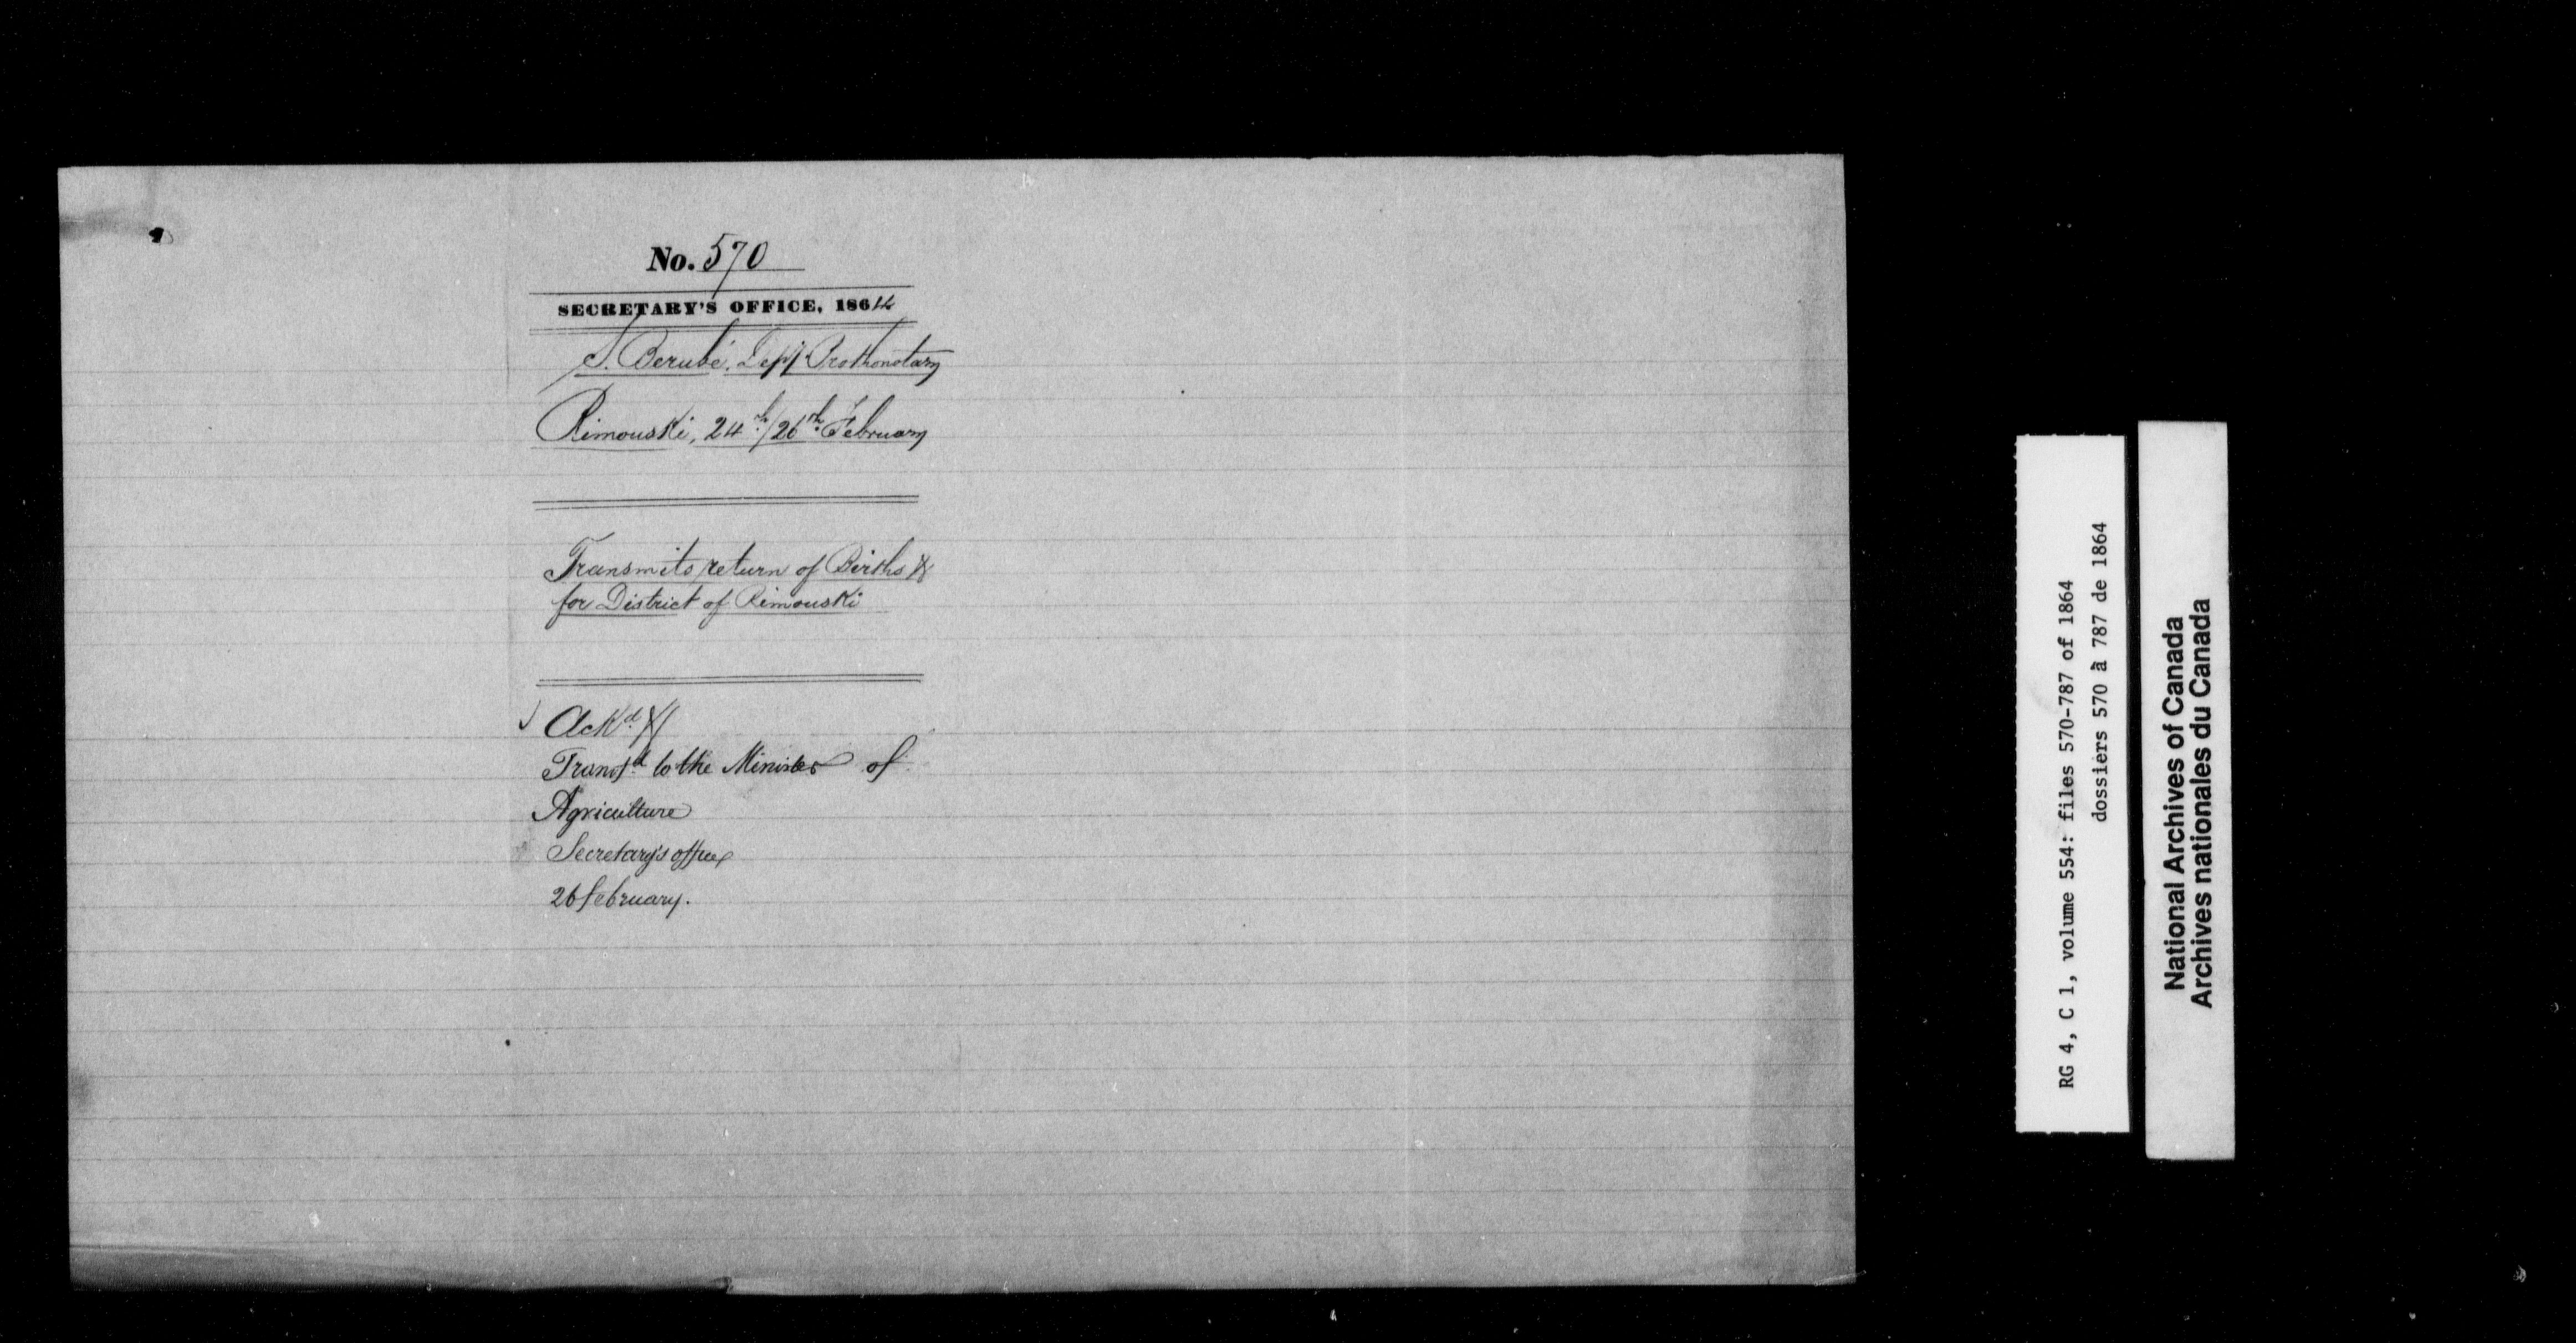 No. 570
SECRETARY'S OFFICE, 1864
S. Berubé, Depy Prothonotary
Rimouski, 24th/26th February
Transmits return of Births &
for District of Rimouski
Ackd
Transfd to the Minister of
Agriculture
Secretary's office
26 february.
RG 4, C 1, volume 554: files 570-787 of 1864
dossiers 570 à 787 de 1864
National Archives of Canada
Archives nationales du Canada